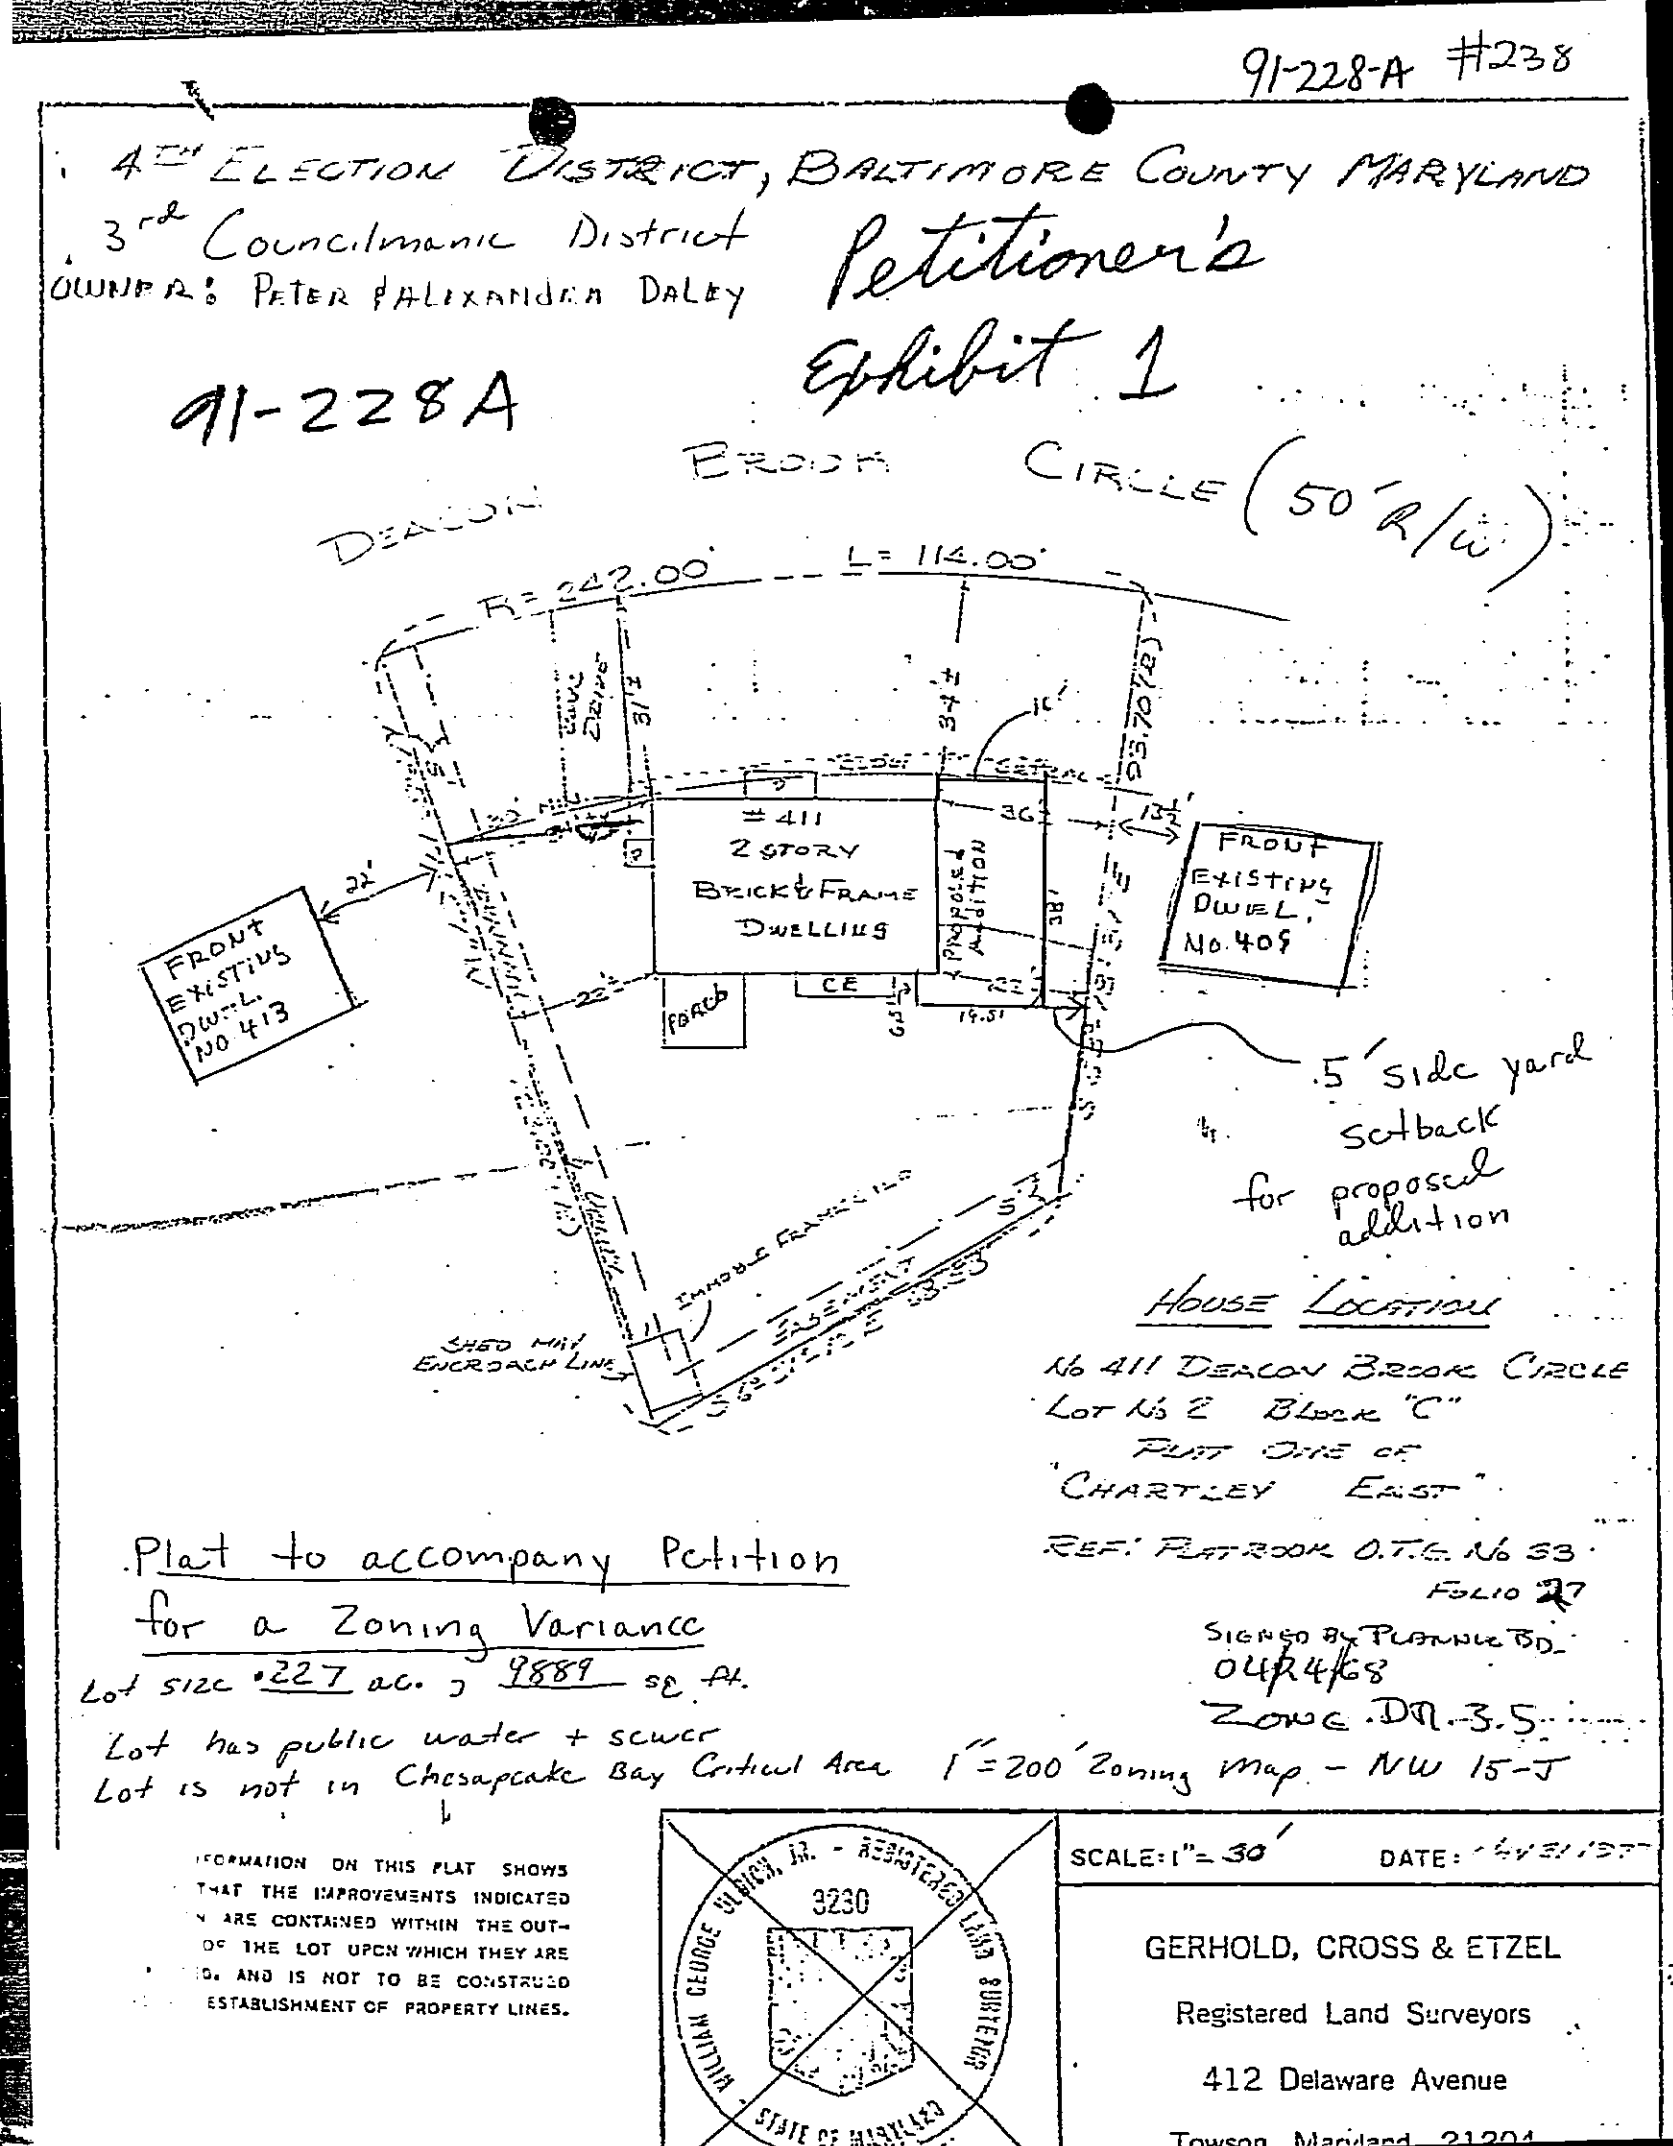 91-228-A #238
4TH ELECTION DISTRICT, BALTIMORE COUNTY MARYLAND
3rd Councilmanic District
OWNER: PETER & ALEXANDRA DALEY
Petitioner's
Exhibit 1
91-228A
DEACON BROOK CIRCLE (50' R/W)
R= 242.00' L= 114.00'
DRIVE
31'±
34'±
16'
93.70
# 411
2 STORY
BRICK & FRAME
DWELLING
PROPOSED
ADDITION
36'±
13½'
38'
FRONT
EXISTING
DWEL.
No. 409
22'
FRONT
EXISTING
DWEL.
NO. 413
22±
PORCH
CE
22±
19.51
5' side yard
setback
for proposed
addition
EASEMENT
SHED MAY
ENCROACH LINE
HOUSE LOCATION
No 411 DEACON BROOK CIRCLE
LOT No 2 BLOCK "C"
PLAT ONE OF
"CHARTLEY EAST"
REF: PLAT BOOK O.T.G. No 33
FOLIO 27
SIGNED BY PLANNING BD.
04/24/68
ZONE DR-3.5
Plat to accompany Petition
for a Zoning Variance
Lot size .227 ac. , 9889 sq. ft.
Lot has public water + sewer
Lot is not in Chesapeake Bay Critical Area 1"=200' Zoning Map - NW 15-J
ON THIS PLAT SHOWS
THAT THE IMPROVEMENTS INDICATED
ARE CONTAINED WITHIN THE OUT-
OF THE LOT UPON WHICH THEY ARE
AND IS NOT TO BE CONSTRUED
ESTABLISHMENT OF PROPERTY LINES.
WILLIAM GEORGE ULRICH, JR. - REGISTERED LAND SURVEYOR
3230
STATE OF MARYLAND
SCALE: 1"= 30' DATE:
GERHOLD, CROSS & ETZEL
Registered Land Surveyors
412 Delaware Avenue
Towson, Maryland 21204